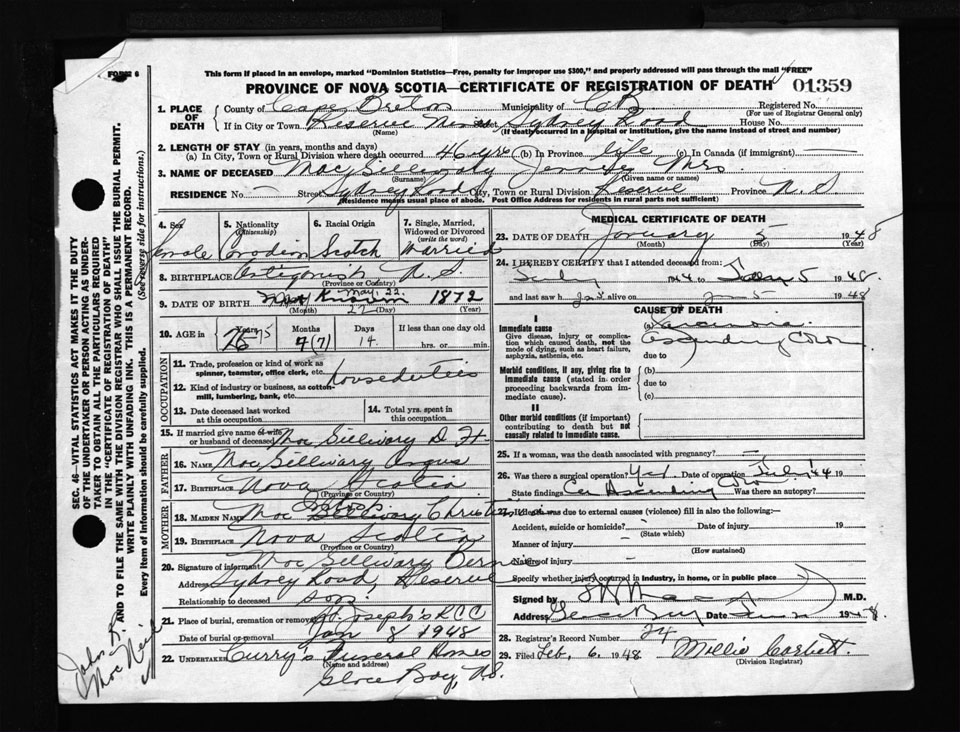 FORM 6
This form if placed in an envelope, marked "Dominion Statistics—Free, penalty for improper use $300," and properly addressed will pass through the mail "FREE"
PROVINCE OF NOVA SCOTIA—CERTIFICATE OF REGISTRATION OF DEATH 01359
1. PLACE OF DEATH County of Cape Breton Municipality of C B Registered No.
(For use of Registrar General only)
If in City or Town Reserve Mines Sydney Road House No.
(Name) (If death occurred in a hospital or institution, give the name instead of street and number)
2. LENGTH OF STAY (in years, months and days)
(a) In City, Town or Rural Division where death occurred 46 yrs (b) In Province life (c) In Canada (if immigrant) —
3. NAME OF DECEASED Mac Gillivary Jennett Mrs.
(Surname) (Given name or names)
RESIDENCE No. — Street Sydney Road City, Town or Rural Division Reserve Province N. S
(Residence means usual place of abode. Post Office Address for residents in rural parts not sufficient)
4. Sex Female
5. Nationality (Citizenship) Canadian
6. Racial Origin Scotch
7. Single, Married, Widowed or Divorced (write the word) Married
8. BIRTHPLACE Antigonish N. S.
(Province or Country)
9. DATE OF BIRTH May 22 1872
(Month) 22 (Day) (Year)
10. AGE in Years 75 Months 7 (7) Days 14 If less than one day old
hrs. or min.
OCCUPATION
11. Trade, profession or kind of work as spinner, teamster, office clerk, etc. Houseduties
12. Kind of industry or business, as cotton-mill, lumbering, bank, etc.
13. Date deceased last worked at this occupation
14. Total yrs. spent in this occupation
15. If married give name of wife or husband of deceased Mac Gillivary D. H.
FATHER
16. NAME Mac Gillivary Angus
17. BIRTHPLACE Nova Scotia
(Province or Country)
MOTHER
18. MAIDEN NAME Mac Gillivary Christina
19. BIRTHPLACE Nova Scotia
(Province or Country)
20. Signature of informant Mac Gillivary Bernie
Address Sydney Road, Reserve
Relationship to deceased son.
21. Place of burial, cremation or removal St. Joseph's R C C
Date of burial or removal Jan 8 1948
22. UNDERTAKER Curry's Funeral Homes
(Name and address)
Glace Bay, N.S.
MEDICAL CERTIFICATE OF DEATH
23. DATE OF DEATH January 5 1948
(Month) (Day) (Year)
24. I HEREBY CERTIFY that I attended deceased from
July 1944 to Jan 5 1948
and last saw h alive on Jan 5 1948
CAUSE OF DEATH
I
Immediate cause
Give disease, injury or complication which caused death, not the mode of dying, such as heart failure, asphyxia, asthenia, etc.
(a) Carcinoma
Ascending Colon
due to
Morbid conditions, if any, giving rise to immediate cause (stated in order proceeding backwards from immediate cause).
(b)
due to
(c)
II
Other morbid conditions (if important) contributing to death but not causally related to immediate cause.
25. If a woman, was the death associated with pregnancy? —
26. Was there a surgical operation? Yes Date of operation July '44 19
State findings Ca Ascending Colon Was there an autopsy?
27. If death was due to external causes (violence) fill in also the following:—
Accident, suicide or homicide? Date of injury 19
(State which)
Manner of injury
(How sustained)
Nature of injury
Specify whether injury occurred in industry, in home, or in public place
Signed by M.D.
Address Glace Bay Date 1948
28. Registrar's Record Number 24
29. Filed Feb. 6. 1948 Mollie Corbett.
(Division Registrar)
SEC. 46—VITAL STATISTICS ACT MAKES IT THE DUTY
OF THE UNDERTAKER OR PERSON ACTING AS UNDER-
TAKER TO OBTAIN ALL THE PARTICULARS REQUIRED
IN THE "CERTIFICATE OF REGISTRATION OF DEATH"
AND TO FILE THE SAME WITH THE DIVISION REGISTRAR WHO SHALL ISSUE THE BURIAL PERMIT.
WRITE PLAINLY WITH UNFADING INK. THIS IS A PERMANENT RECORD.
Every item of Information should be carefully supplied. (See reverse side for instructions.)
John R.
Mac Neil